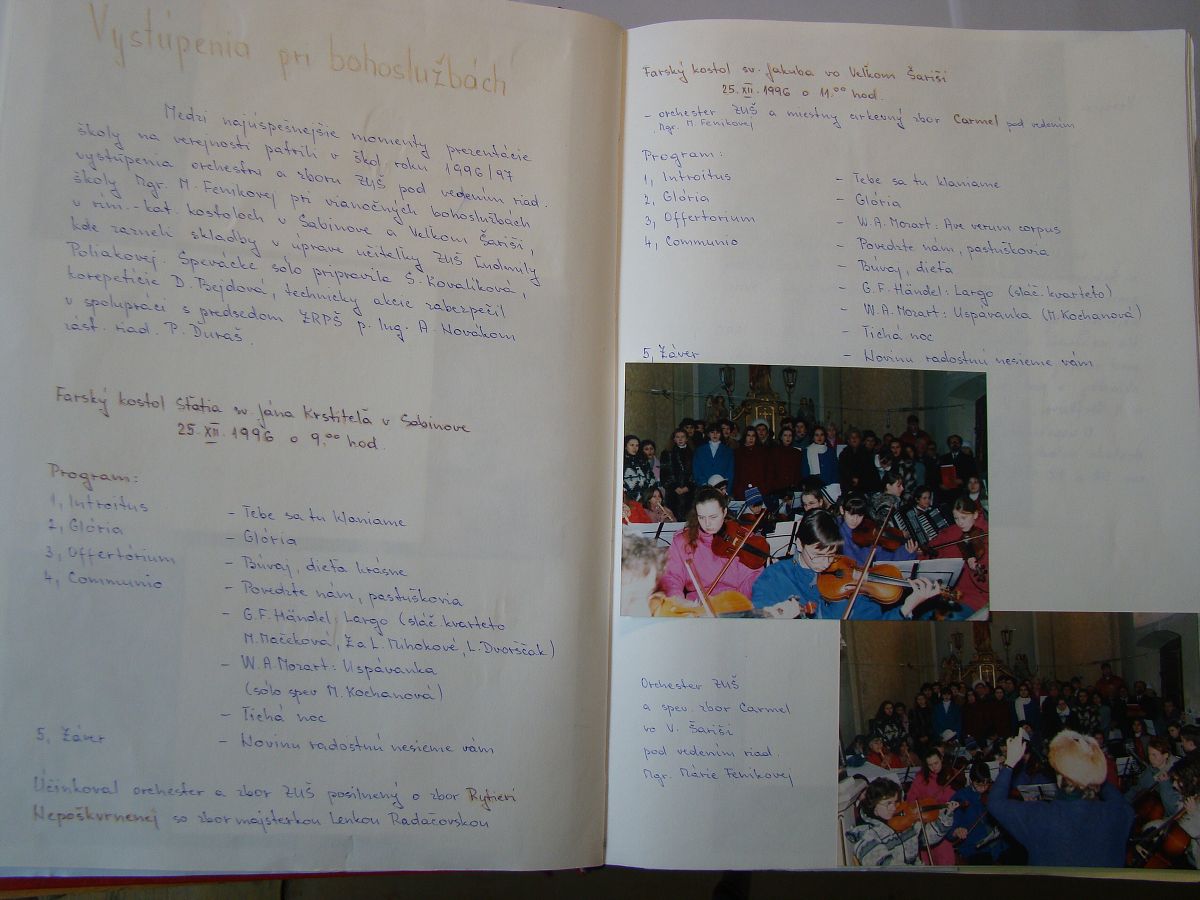 Vystúpenia pri bohoslužbách
Medzi najúspešnejšie momenty prezentácie
školy na verejnosti patrili v škol. roku 1996/97
vystúpenia orchestru a zboru ZUŠ pod vedením riad.
školy Mgr. M. Feníkovej pri vianočných bohoslužbách
v rím.-kat. kostoloch v Sabinove a Veľkom Šariši,
kde zazneli skladby v úprave učiteľky ZUŠ Ľudmily
Poliakovej. Spevácke sólo pripravila S. Kovalíková,
korepetície D. Bejdová, technicky akcie zabezpečil
v spolupráci s predsedom ZRPŠ p. Ing. A. Novákom
zást. riad. P. Ďuraš.
Farský kostol Sťatia sv. Jána Krstiteľa v Sabinove
25. XII. 1996 o 9.00 hod.
Program:
1, Introitus - Tebe sa tu klaniame
2, Glória - Glória
3, Offertórium - Búvaj, dieťa krásne
4, Communio - Povedzte nám, pastuškovia
- G.F. Händel: Largo (sláč. kvarteto
M. Mačeková, Z. a L. Mihokové, L. Dvorščak)
- W.A. Mozart: Uspávanka
(sólo spev M. Kochanová)
- Tichá noc
5, Záver - Novinu radostnú nesieme vám
Účinkoval orchester a zbor ZUŠ posilnený o zbor Rytieri
Nepoškvrnenej so zbormajsterkou Lenkou Radačovskou
Farský kostol sv. Jakuba vo Veľkom Šariši
25. XII. 1996 o 11.00 hod.
- orchester ZUŠ a miestny cirkevný zbor Carmel pod vedením
Mgr. M. Feníkovej
Program:
1, Introitus - Tebe sa tu klaniame
2, Glória - Glória
3, Offertorium - W.A. Mozart: Ave verum corpus
4, Communio - Povedzte nám, pastuškovia
- Búvaj, dieťa
- G.F. Händel: Largo (sláč. kvarteto)
- W.A. Mozart: Uspávanka (M. Kochanová)
- Tichá noc
5, Záver - Novinu radostnú nesieme vám
Orchester ZUŠ
a spev. zbor Carmel
vo V. Šariši
pod vedením riad.
Mgr. Márie Feníkovej